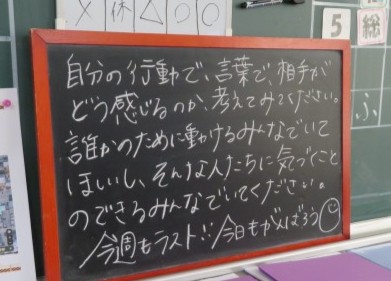 X 休 △ ○ ○
5 総
ふ
自分の行動で、言葉で、相手が
どう感じるのか、考えてみてください。
誰かのために動けるみんなでいて
ほしいし、そんな人たちに気づくこと
のできるみんなでいてください。
今週もラスト!! 今日もがんばろう